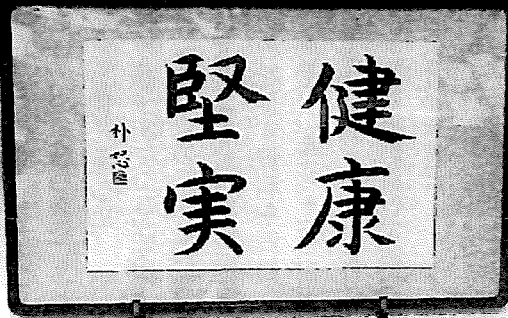 健康
堅実
朴